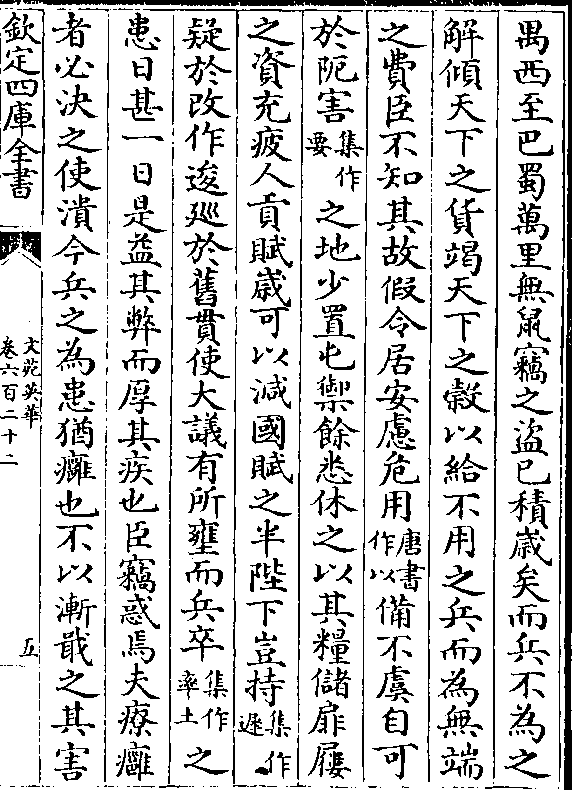 禺西至巴蜀萬里無鼠竊之盗已積歲矣而兵不為之
解傾天下之貨竭天下之榖以給不用之兵而為無端
之費臣不知其故假令居安慮危用唐書作以備不虞自可
於阨害集作要之地少置屯禦餘悉休之以其糧儲扉屨
之資充疲人貢賦歲可以減國賦之半陛下豈持集作遲
疑於改作逡廵於舊貫使大議有所壅而兵卒集作率土之
患日甚一日是益其弊而厚其疾也臣竊惑焉夫療癰
者必決之使潰今兵之為患猶癰也不以漸戢之其害
欽定四庫全書
文苑英華
卷六百二十二
五